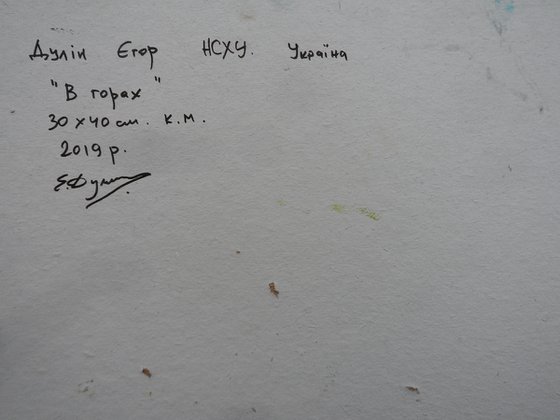 Дулін Єгор НСХУ. Україна
"В горах"
30 х 40 см. к.м.
2019 р.
Є.Дулін